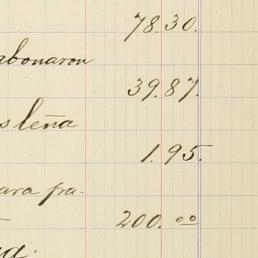 78.30.
abonaron
39.87.
s leña
1.95.
para pa-
200.00